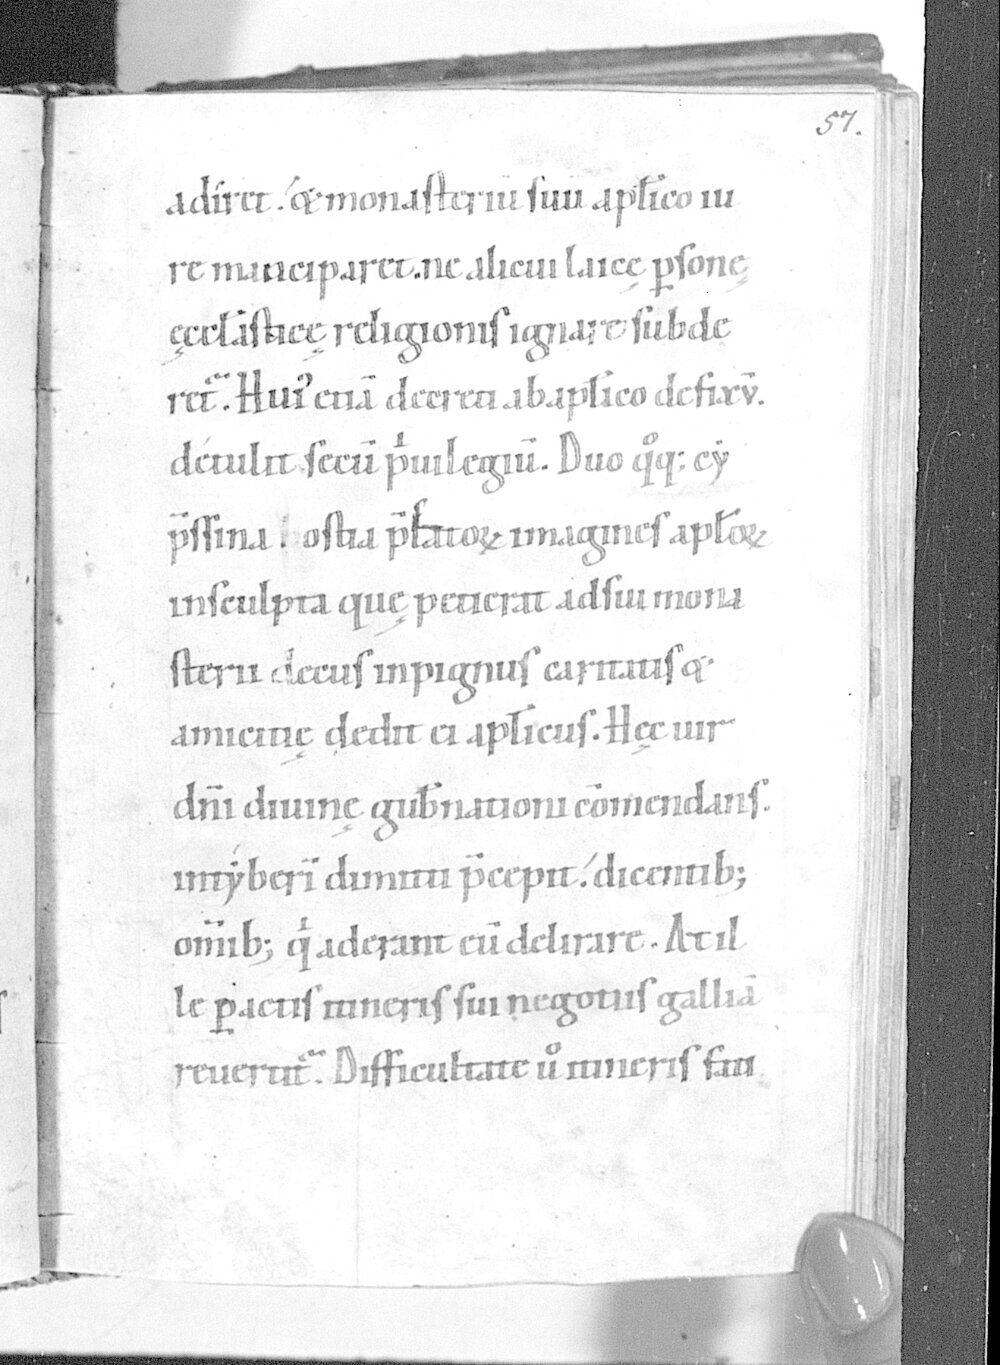 57.
adiret. & monasteriũ suũ apłico iu
re manciparet. ne alicui laicę p̱sonę
ęccłiasticę religionis ignarę subde
ret᷑. Hui᾿ etiã decreti ab apłico defixũ.
detulit secũ pͥuilegiũ. Duo qͦq; cy
p̃ssina hostia p̃łatoꝝ imagines apłoꝝ
insculpta quę petierat ad sui mona
sterii decus in pignus caritatis &
amicitię dedit ei apłicus. Hęc uir
dñi diuinę gub̃nationi cõmendans.
in tyberĩ dimitti p̃cepit. dicentib;
om̃ib; qͥ aderant eũ delirare. At il
le p̱actis itineris sui negotiis galliã
reuertit᷑. Difficultate uͦ itineris fati